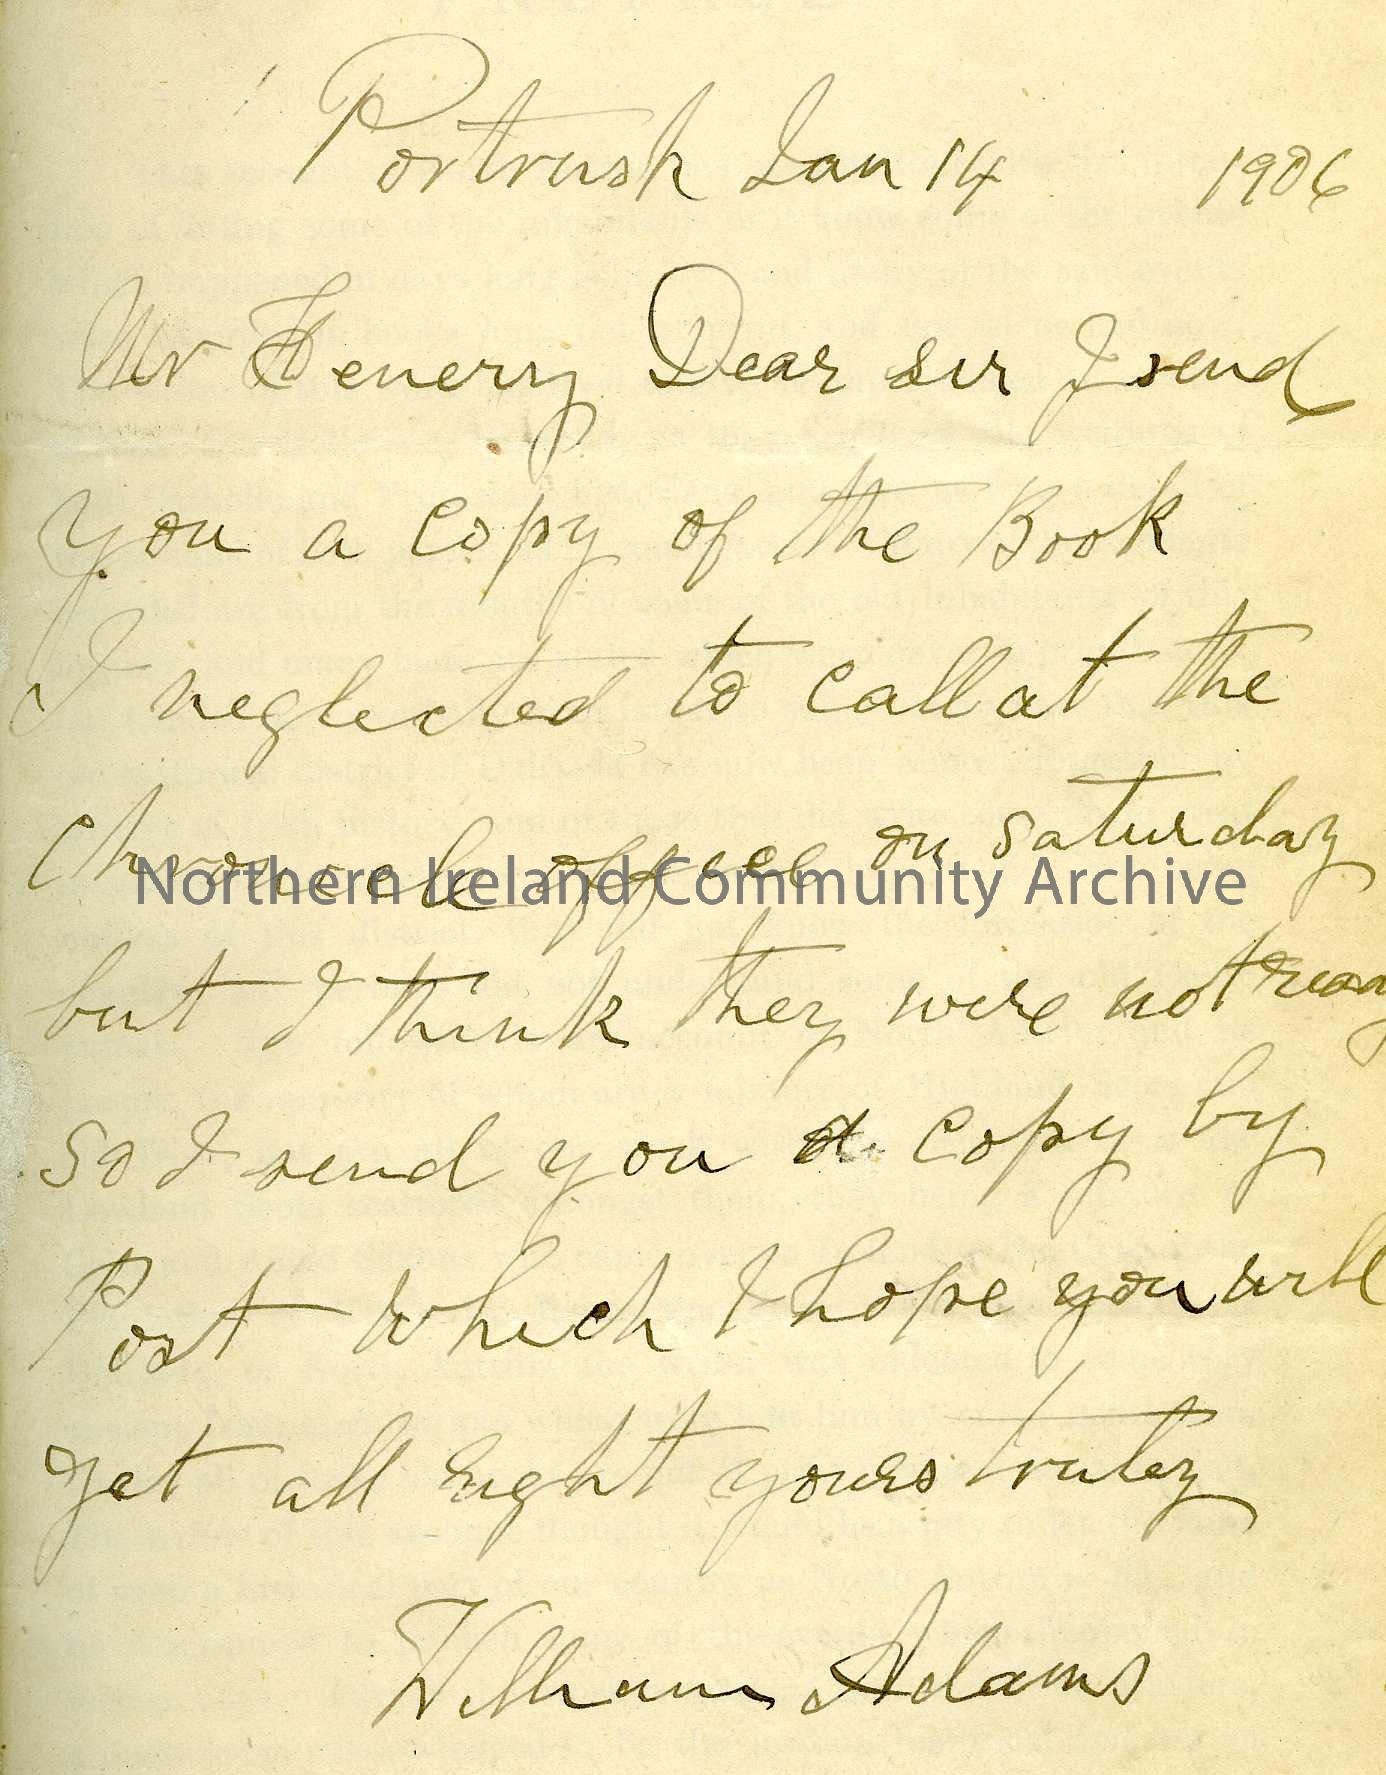 Portrush Jan 14 1906
Mr Henery Dear sir I send
you a copy of the Book
I neglected to call at the
Chronicle office on Saturday
but I think they were not ready
so I send you a copy by
Post which I hope you will
get all right yours truley
William Adams
Northern Ireland Community Archive